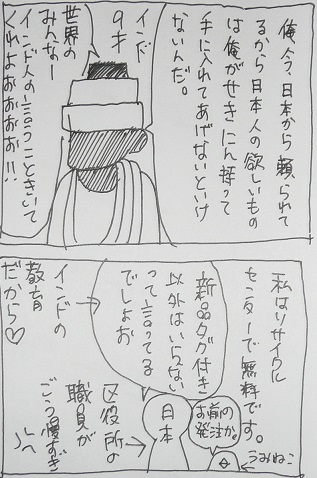 俺今、日本から頼られて
るから日本人の欲しいもの
は俺がせきにん持って
手に入れてあげないといけ
ないんだ。
インド
の才
世界の
みんなー
インド人の言うことをきいて
くれよおおおお!!
私はリサイクル
センターで無料です。
新品タグ付き
以外はいらない
って言ってる
でしょお
お前の
発注か。
うみねこ
日本
区役所の
職員が
ごう慢すぎ
インドの
教育
だから♡